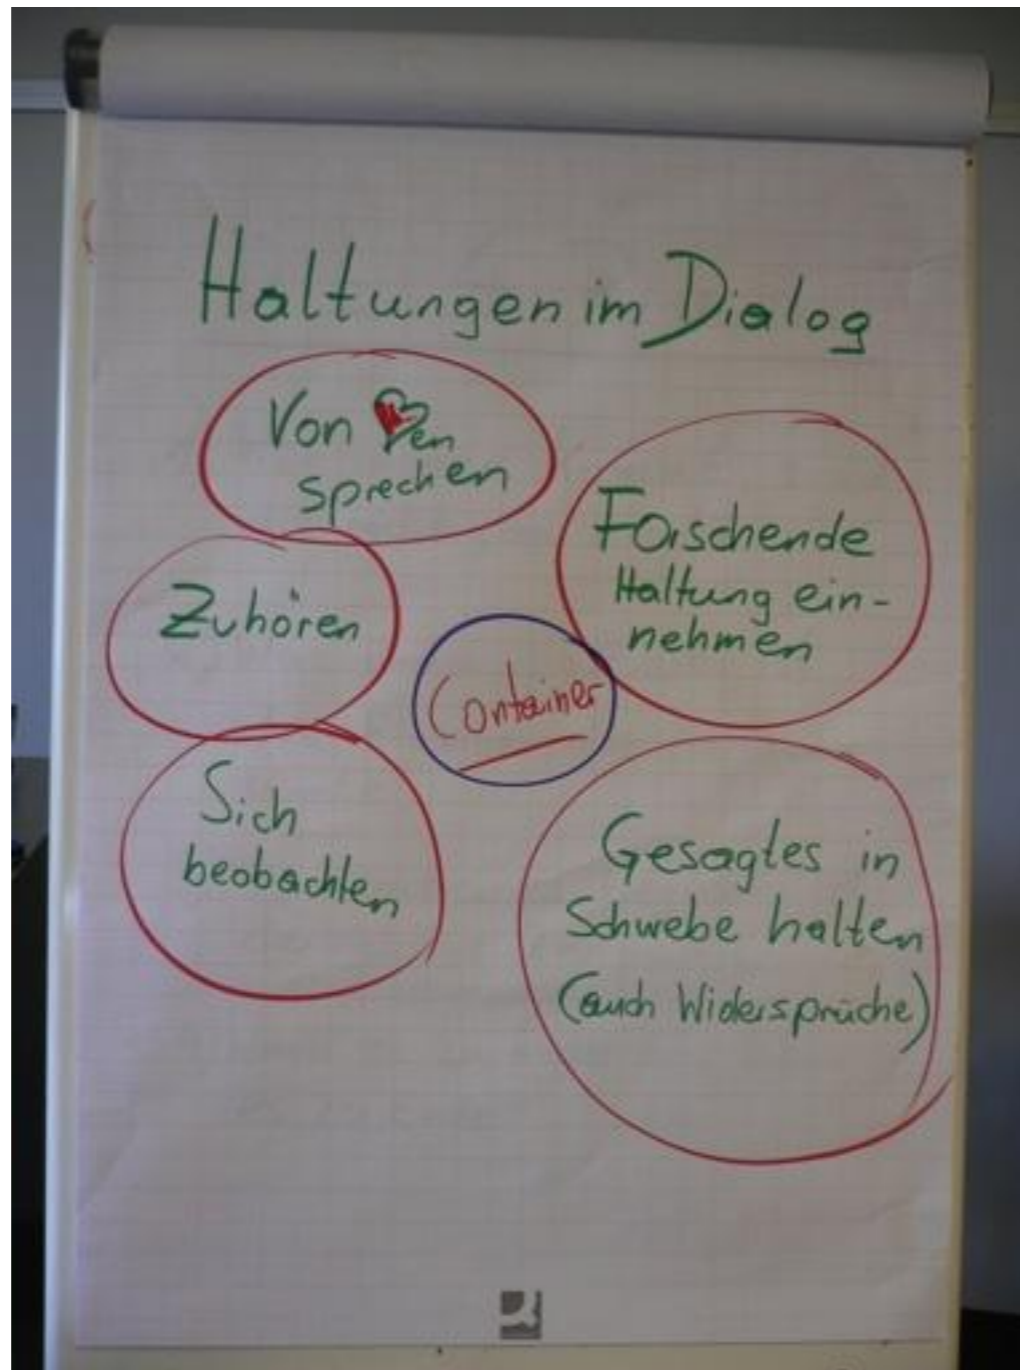 Haltungen im Dialog
Von ❤en
sprechen
Forschende
Haltung ein-
nehmen
Zuhören
Container
Sich
beobachten
Gesagtes in
Schwebe halten
(auch Widersprüche)